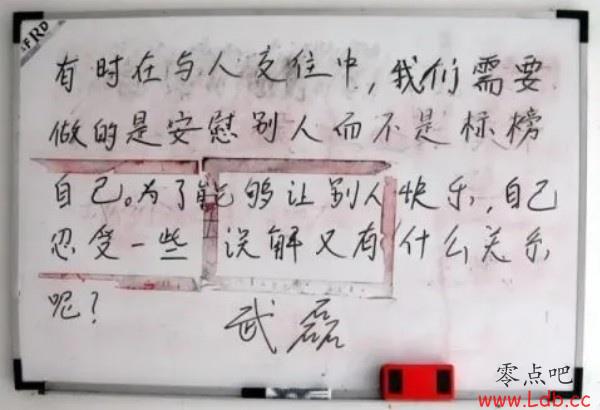 FRD
有时在与人交往中,我们需要
做的是安慰别人而不是标榜
自己。为了能够让别人快乐,自己
忍受一些误解又有什么关系
呢?
武磊
零点吧
www.Ldb.cc